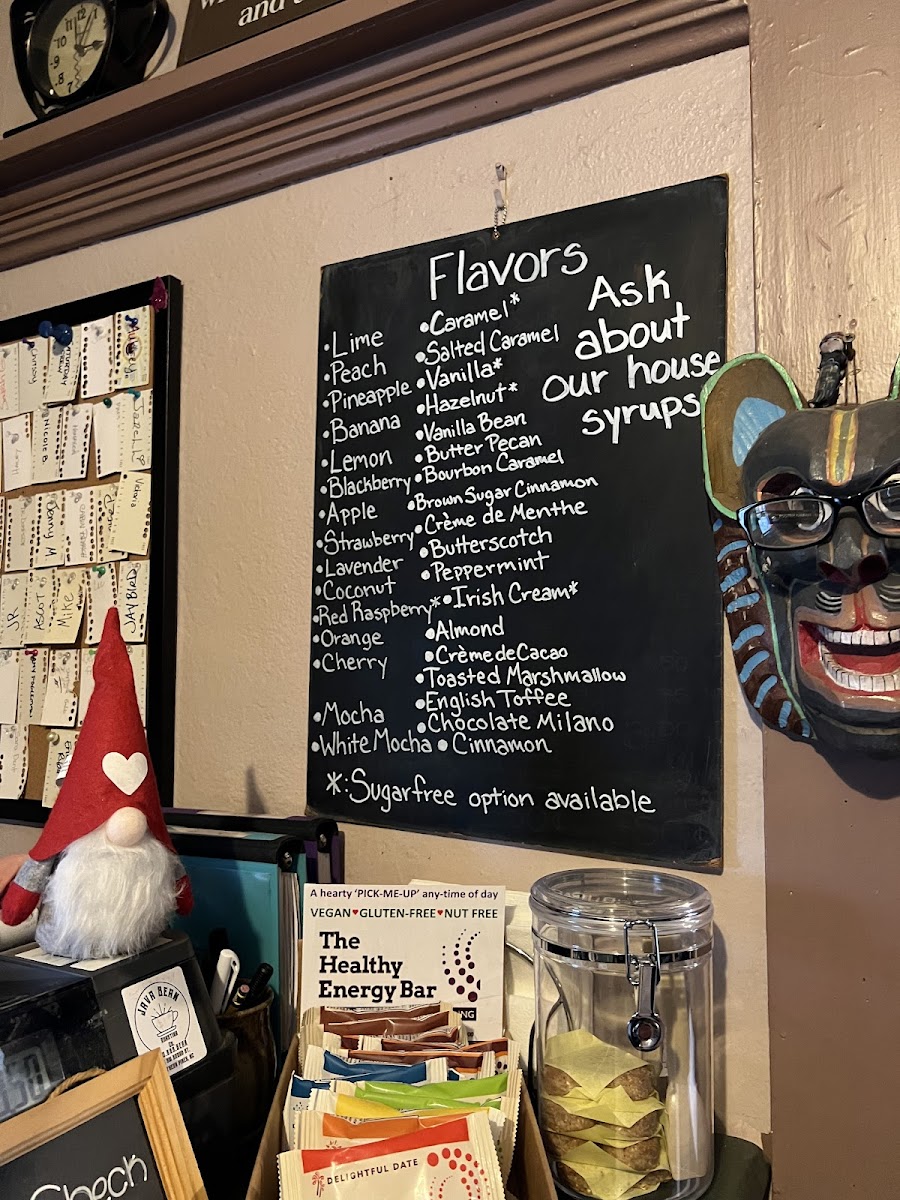 and
12
1
11
10
9
8
7
Flavors
•Lime
•Peach
•Pineapple
•Banana
•Lemon
•Blackberry
•Apple
•Strawberry
•Lavender
•Coconut
•Red Raspberry*
•Orange
•Cherry
•Mocha
•White Mocha
•Caramel*
•Salted Caramel
•Vanilla*
•Hazelnut*
•Vanilla Bean
•Butter Pecan
•Bourbon Caramel
•Brown Sugar Cinnamon
•Crème de Menthe
•Butterscotch
•Peppermint
•Irish Cream*
•Almond
•Crème de Cacao
•Toasted Marshmallow
•English Toffee
•Chocolate Milano
•Cinnamon
Ask
about
our house
syrups
*:Sugarfree option available
NICOLE B.
Jenny M
JR
ASCOT
Mike
JAYBIRD
A hearty 'PICK-ME-UP' any-time of day
VEGAN♥GLUTEN-FREE♥NUT FREE
The
Healthy
Energy Bar
JAVA BEAN
ROASTING
CO
DELIGHTFUL DATE
Check